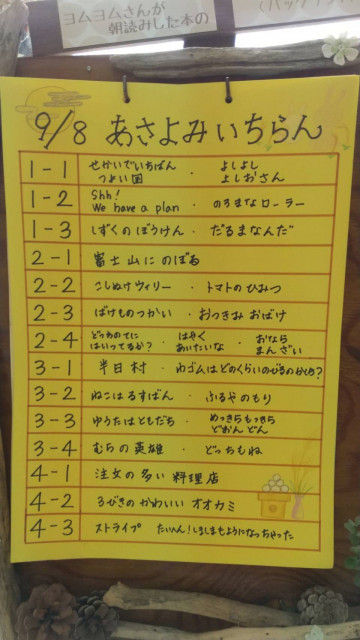 ヨムヨムさんが
朝読みした本の
9/8 あさよみいちらん
1-1 せかいでいちばん つよい国 ・ よしよし よしおさん
1-2 Shh! We have a plan ・ のろまなローラー
1-3 しずくのぼうけん ・ だるまなんだ
2-1 富士山にのぼる
2-2 こしぬけウィリー ・ トマトのひみつ
2-3 ばけものつかい ・ おつきみおばけ
2-4 どっちのてに はいってるか? ・ はやく あいたいな ・ おなら まんざい
3-1 半日村 ・ わゴムはどのくらいのびるのかしら?
3-2 ねこはるすばん ・ ふるやのもり
3-3 ゆうたはともだち ・ めっきらもっきら どおんどん
3-4 むらの英雄 ・ どっちもね
4-1 注文の多い料理店
4-2 ろびきのかわいいオオカミ
4-3 ストライプ たいへん!しましまもようになっちゃった